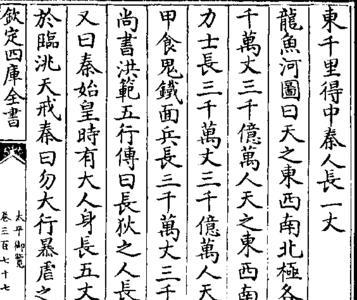 東千里得中秦人長一丈
龍魚河圖曰天之東西南北極各
千萬丈三千億萬人天之東西南
力士長三千萬丈三千億萬人天
甲食鬼鐵面兵長三千萬丈三千
尚書洪範五行傳曰長狄之人長
又曰秦始皇時有大人身長五丈
於臨洮天戒秦曰勿大行暴虐之
欽定四庫全書
太平御覽
卷三百七十七